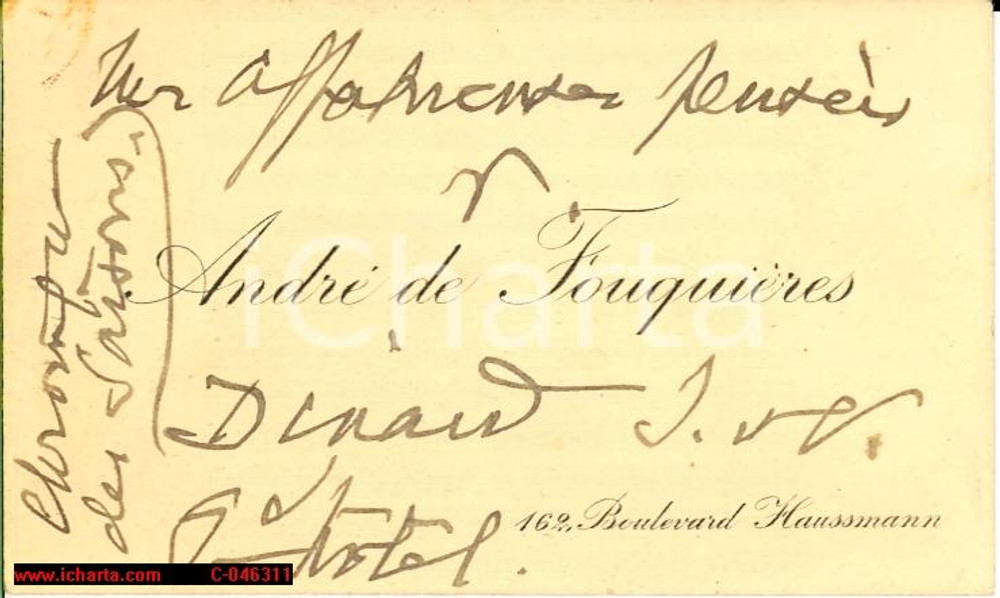 affectueuses pensées
André de Fouquières
iCharta
Dinard I. et V.
Hôtel.
162, Boulevard Haussmann
Chronique
des Saisons.
www.icharta.com C-046311